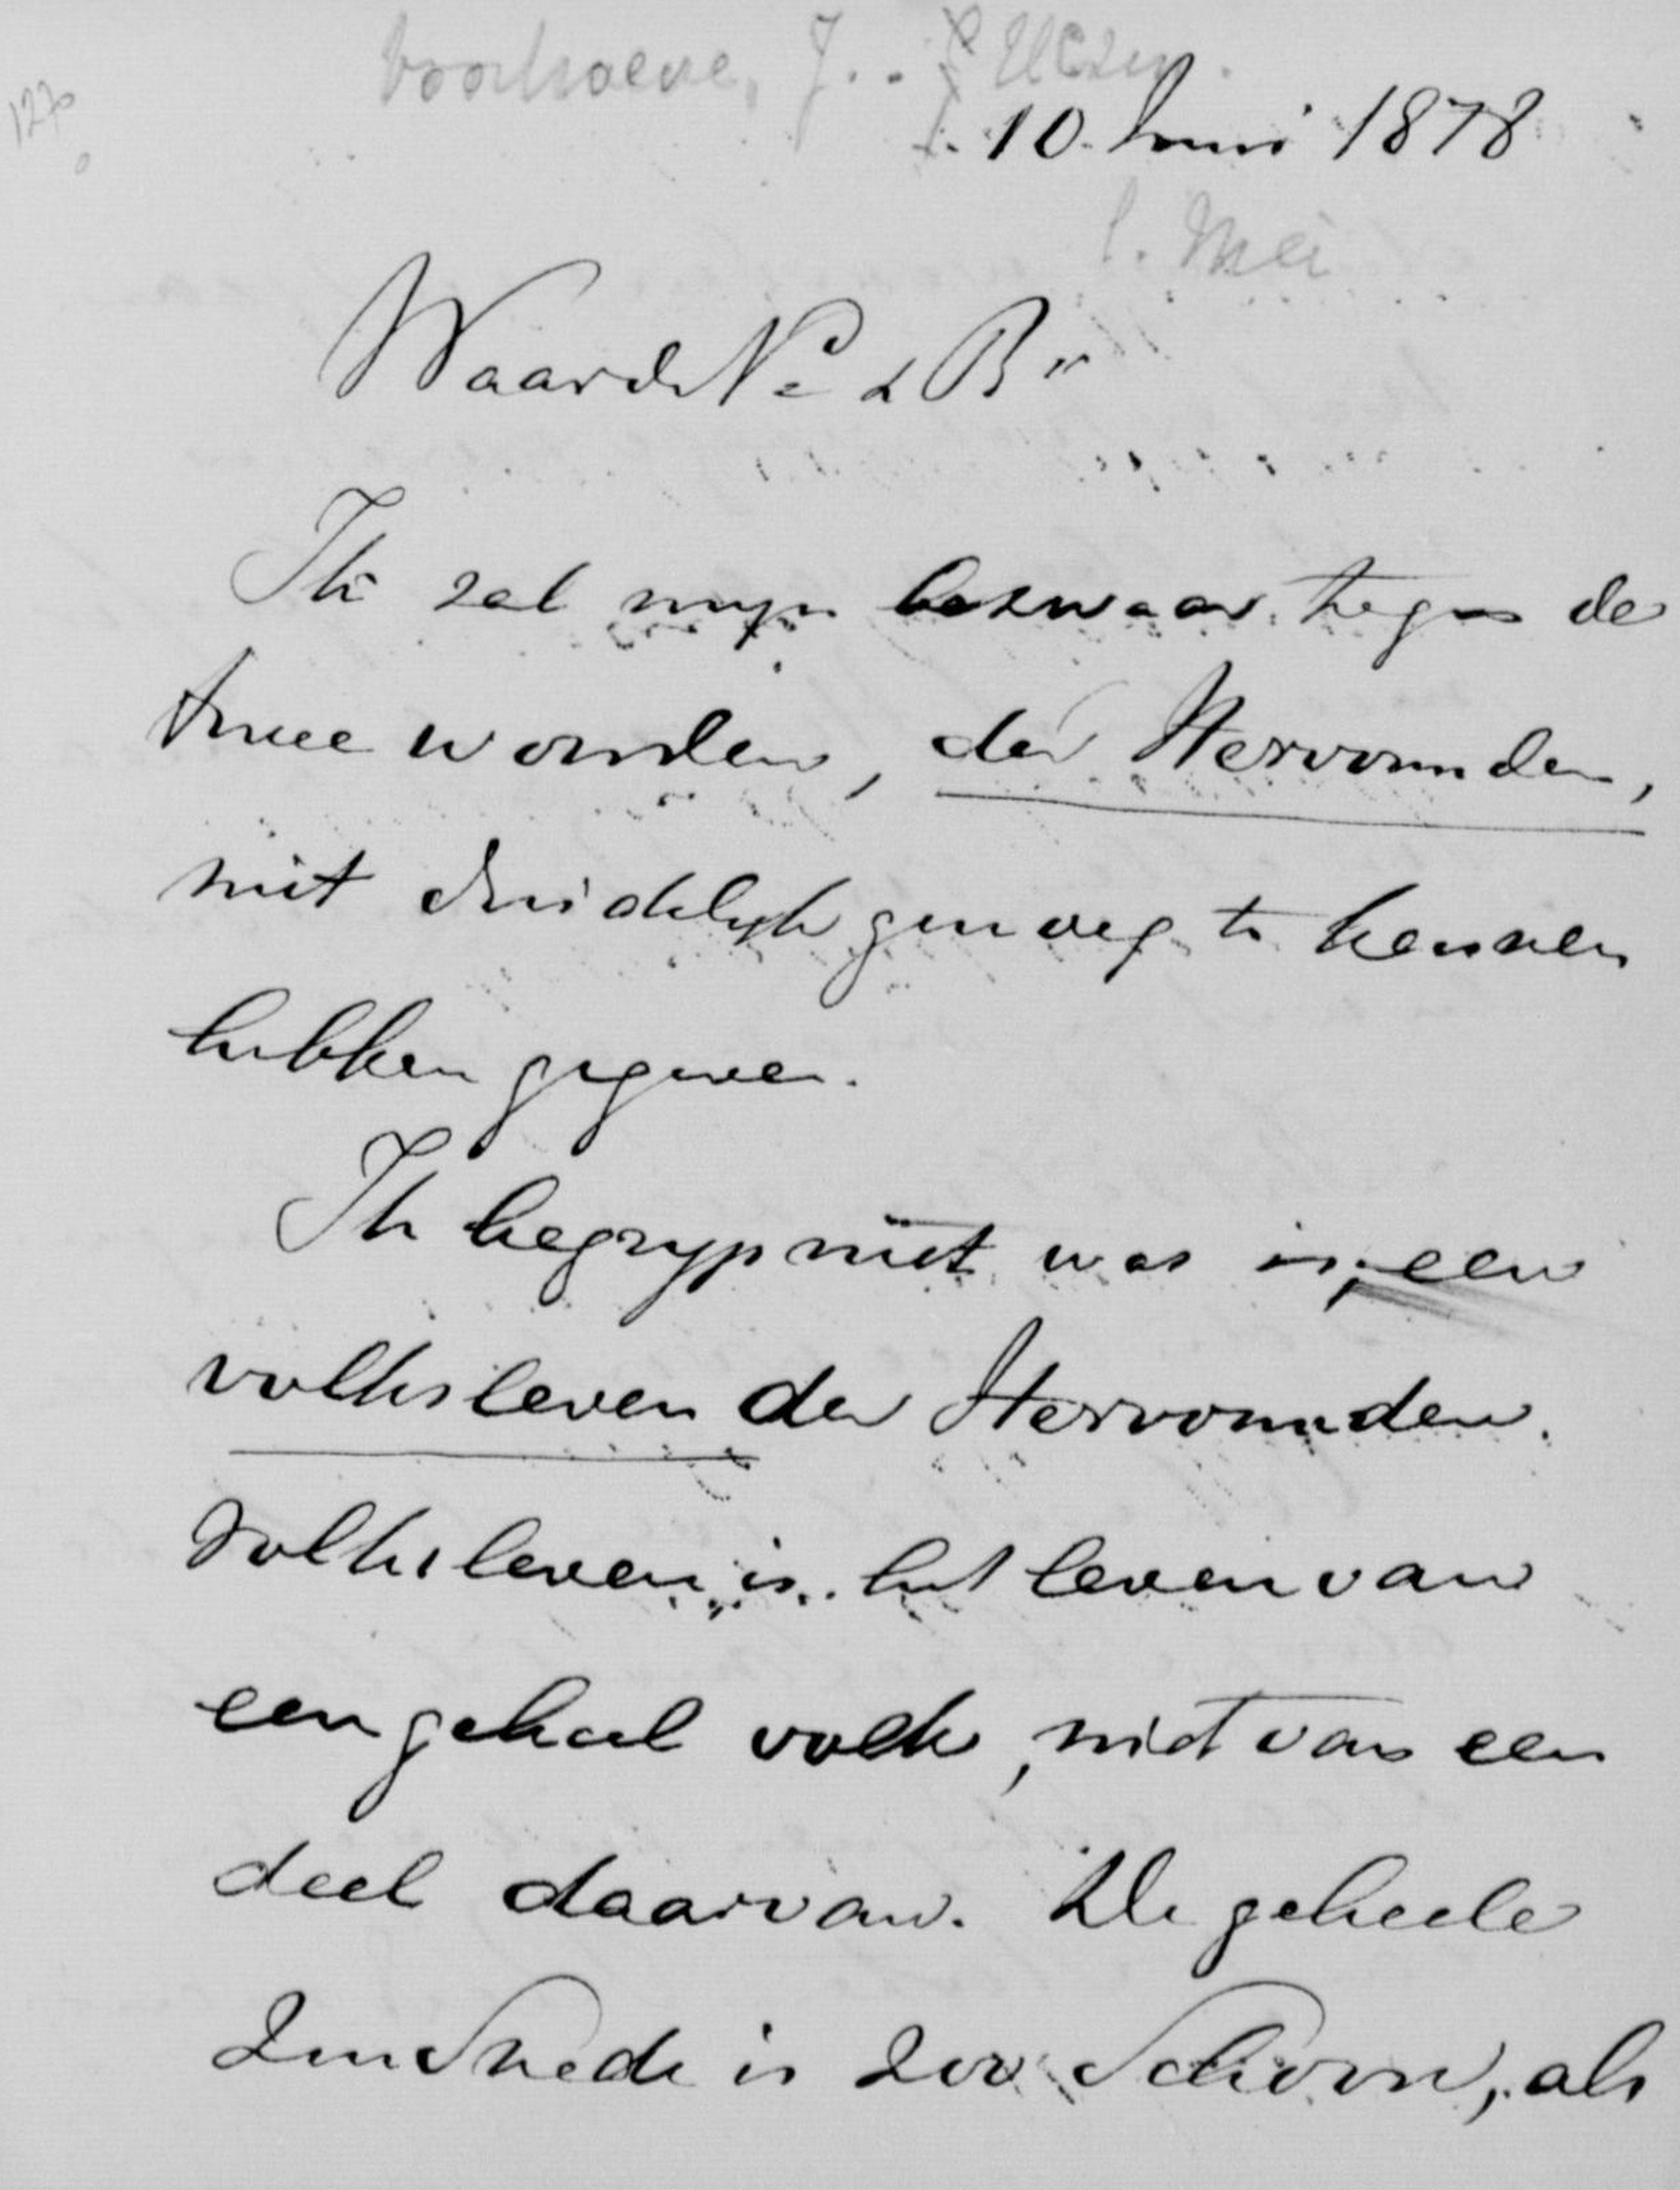 Voorhoeve, J.
127
10 Juni 1878
l. Mei
Waarde Vr & Br
Ik zal mijn bezwaar tegen de
twee woorden, der Hervormden,
niet duidelijk genoeg te kennen
hebben gegeven.
Ik begryp niet wat is, een
volksleven der Hervormden.
Volksleven is het leven van
een geheel volk, niet van een
deel daarvan. De geheele
zinsnede is zoo schoon, als